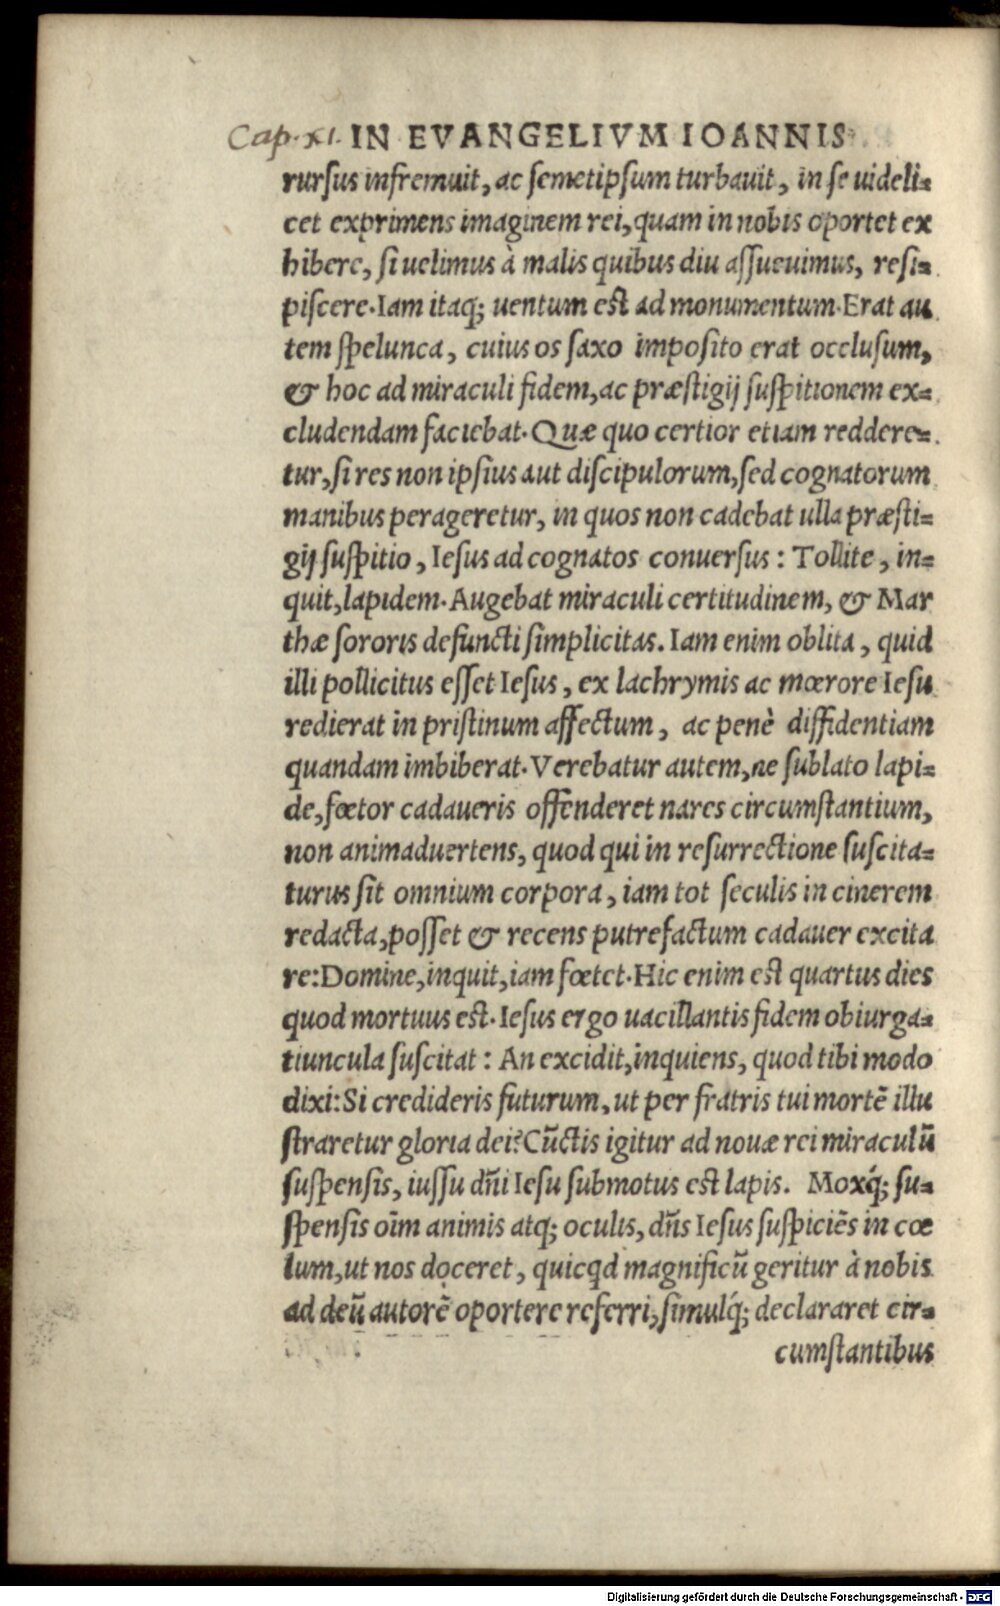 Cap. XI. IN EVANGELIVM IOANNIS
rursus infremuit, ac semetipsum turbauit, in se uideli=
cet exprimens imaginem rei, quam in nobis oportet ex
hibere, si uelimus à malis quibus diu assueuimus, resi=
piscere. Iam itaq; uentum est ad monumentum. Erat au
tem spelunca, cuius os saxo imposito erat occlusum,
& hoc ad miraculi fidem, ac præstigij suspitionem ex=
cludendam faciebat. Quæ quo certior etiam reddere=
tur, si res non ipsius aut discipulorum, sed cognatorum
manibus perageretur, in quos non cadebat ulla præsti=
gij suspitio, Iesus ad cognatos conuersus: Tollite, in=
quit, lapidem. Augebat miraculi certitudinem, & Mar
thæ sororis defuncti simplicitas. Iam enim oblita, quid
illi pollicitus esset Iesus, ex lachrymis ac mœrore Iesu
redierat in pristinum affectum, ac penè diffidentiam
quandam imbiberat. Verebatur autem, ne sublato lapi=
de, fœtor cadaueris offenderet nares circumstantium,
non animaduertens, quod qui in resurrectione suscita=
turus sit omnium corpora, iam tot seculis in cinerem
redacta, posset & recens putrefactum cadauer excita
re: Domine, inquit, iam fœtet. Hic enim est quartus dies
quod mortuus est. Iesus ergo uacillantis fidem obiurga=
tiuncula suscitat: An excidit, inquiens, quod tibi modo
dixi: Si credideris futurum, ut per fratris tui mortẽ illu
straretur gloria dei? Cũctis igitur ad nouæ rei miraculũ
suspensis, iussu dñi Iesu submotus est lapis. Moxq́; su=
spensis oĩm animis atq; oculis, dñs Iesus suspiciẽs in cœ
lum, ut nos doceret, quicqd magnificũ geritur à nobis
ad deũ autorẽ oportere referri, simulq́; declararet cir=
cumstantibus
Digitalisierung gefördert durch die Deutsche Forschungsgemeinschaft - DFG